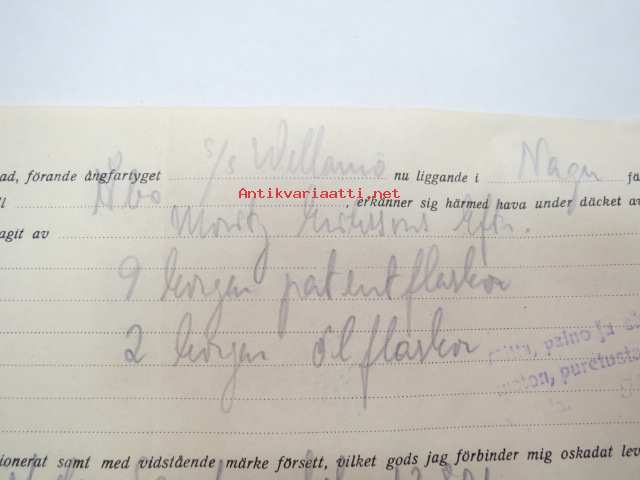 ad, förande ångfartyget s/s Wellamo nu liggande i Nagu
ll Åbo, erkänner sig härmed hava under däcket av
Antikvariaatti.net
agit av Moritz Erikssons Eftr.
9 korgar patentflaskor
2 korgar ölflaskor
paino ja
puretusta
ionerat samt med vidstående märke försett, vilket gods jag förbinder mig oskadat lev